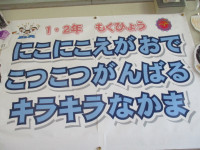 1・2年 もくひょう
にこにこえがおで
こつこつがんばる
キラキラなかま